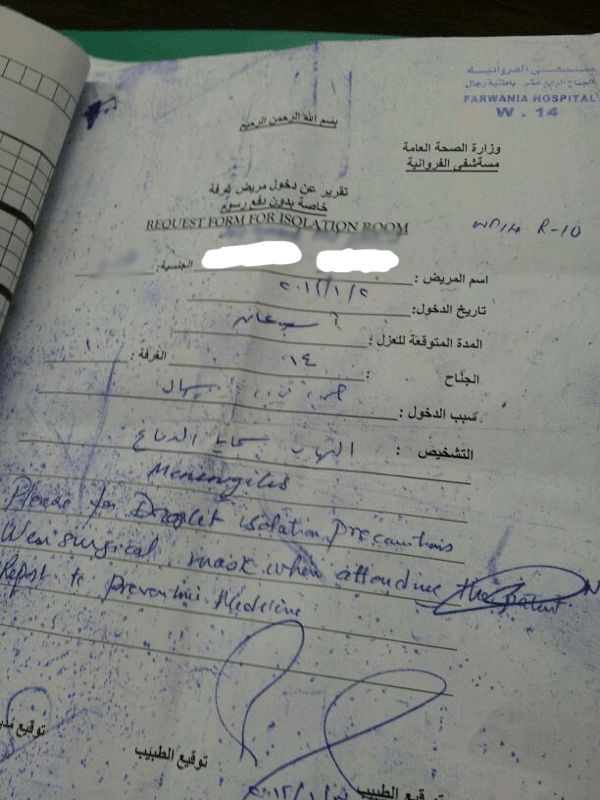 مستشفى الفروانيه
الجناح الرابع عشر باطنية رجال
FARWANIA HOSPITAL
W. 14
بسم الله الرحمن الرحيم
وزارة الصحة العامة
مستشفى الفروانية
تقرير عن دخول مريض غرفة
خاصة بدون دفع رسوم
REQUEST FORM FOR ISOLATION ROOM
R-10
اسم المريض : الجنسية :
تاريخ الدخول: ٢٠١٢/١/٢
المدة المتوقعة للعزل :
الجناح : ١٤ الغرفة : ١
سبب الدخول :
التشخيص : التهاب سحايا الدماغ
Meningites
Please for Droplet isolation precautions
Wear surgical mask when attending the patient
Report to Preventive Medicine
توقيع الطبيب
توقيع الطبيب